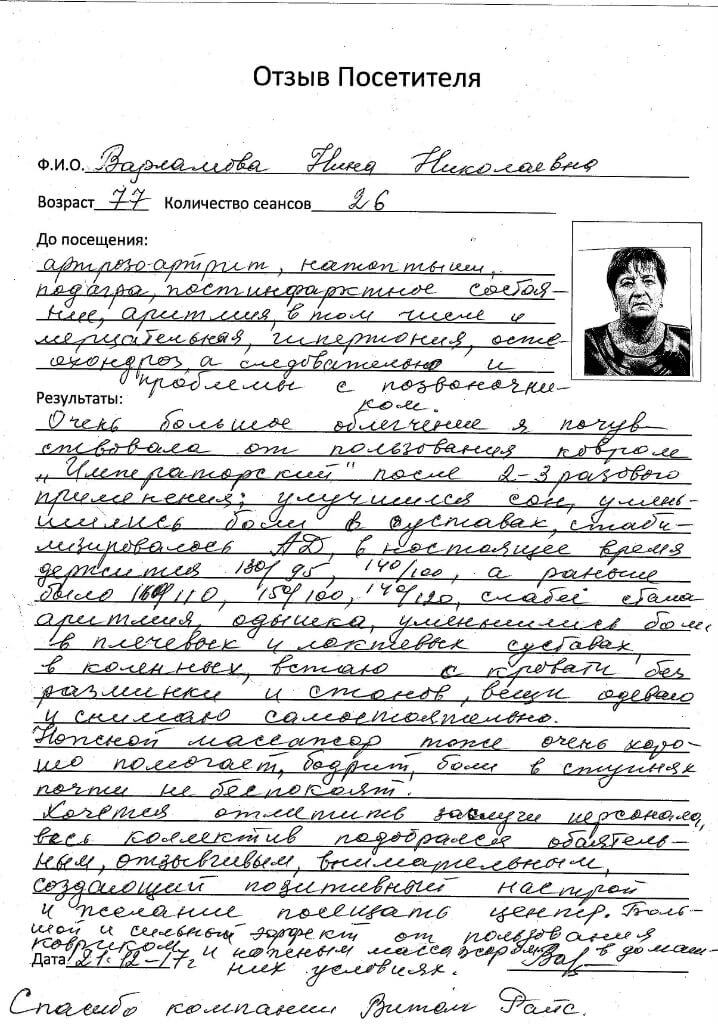 Отзыв Посетителя
Ф.И.О. Варламова Нина Николаевна
Возраст 77 Количество сеансов 26
До посещения:
артрозо-артрит, натоптыши,
подагра, постинфарктное состоя-
ние, аритмия, в том числе и
мерцательная, гипертония, осте-
охондроз, а следовательно и
проблемы с позвоночни-
ком.
Результаты:
Очень большое облегчение я почув-
ствовала от пользования ковром
„Императорский" после 2-3 разового
применения: улучшился сон, умень-
шились боли в суставах, стаби-
лизировалось АД, в настоящее время
держится 130/95, 140/100, а раньше
было 160/110, 150/100, 140/120, слабей стала
аритмия, одышка, уменьшились боли
в плечевых и локтевых суставах,
в коленных, встаю с кровати без
разминки и стонов, вещи одеваю
и снимаю самостоятельно.
Ножной массажор тоже очень хоро-
шо помогает, бодрит, боли в ступнях
почти не беспокоят.
Хочется отметить заслуги персонала,
весь коллектив подобрался обаятель-
ным, отзывчивым, внимательным,
создающий позитивный настрой
и желание посещать центр. Боль-
шой и сильный эффект от пользования
ковриком и ножным массажором в домаш-
них условиях.
Дата 21-12-17г
Спасибо компании Витом Райс.